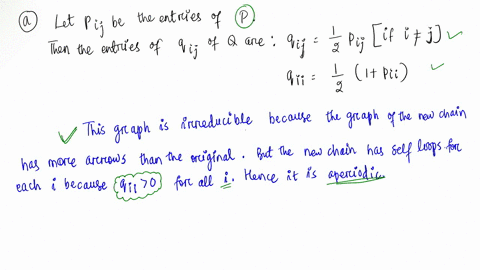 (a) Let Pij be the entries of P.
Then the entries of qij of Q are: qij = 1/2 Pij [if i ≠ j] ✓
qii = 1/2 (1+Pii) ✓
✓ This graph is irreducible because the graph of the new chain
has more arrows than the original. But the new chain has self loops for
each i because qii>0 for all i. Hence it is aperiodic.